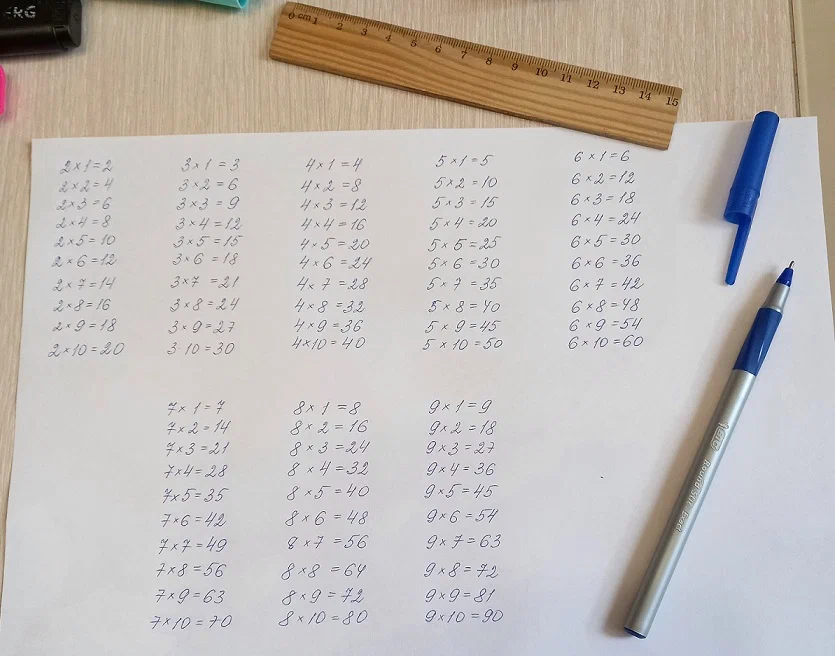 RG
0 cm 1 2 3 4 5 6 7 8 9 10 11 12 13 14 15
2×1=2
2×2=4
2×3=6
2×4=8
2×5=10
2×6=12
2×7=14
2×8=16
2×9=18
2×10=20
3×1=3
3×2=6
3×3=9
3×4=12
3×5=15
3×6=18
3×7=21
3×8=24
3×9=27
3 10=30
4×1=4
4×2=8
4×3=12
4×4=16
4×5=20
4×6=24
4×7=28
4×8=32
4×9=36
4×10=40
5×1=5
5×2=10
5×3=15
5×4=20
5×5=25
5×6=30
5×7=35
5×8=40
5×9=45
5×10=50
6×1=6
6×2=12
6×3=18
6×4=24
6×5=30
6×6=36
6×7=42
6×8=48
6×9=54
6×10=60
7×1=7
7×2=14
7×3=21
7×4=28
7×5=35
7×6=42
7×7=49
7×8=56
7×9=63
7×10=70
8×1=8
8×2=16
8×3=24
8×4=32
8×5=40
8×6=48
8×7=56
8×8=64
8×9=72
8×10=80
9×1=9
9×2=18
9×3=27
9×4=36
9×5=45
9×6=54
9×7=63
9×8=72
9×9=81
9×10=90
BIC Round Stic Exact